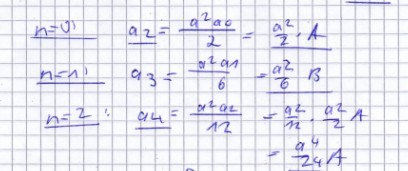 n=0: a₂ = a²a₀/2 = a²/2 · A
n=1: a₃ = a²a₁/6 = a²/6 B
n=2: a₄ = a²a₂/12 = a²/12 · a²/2 A
= a⁴/24 A